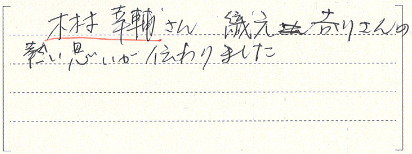 木村 幸輔さん 織元 さんの
熱い思いが伝わりました